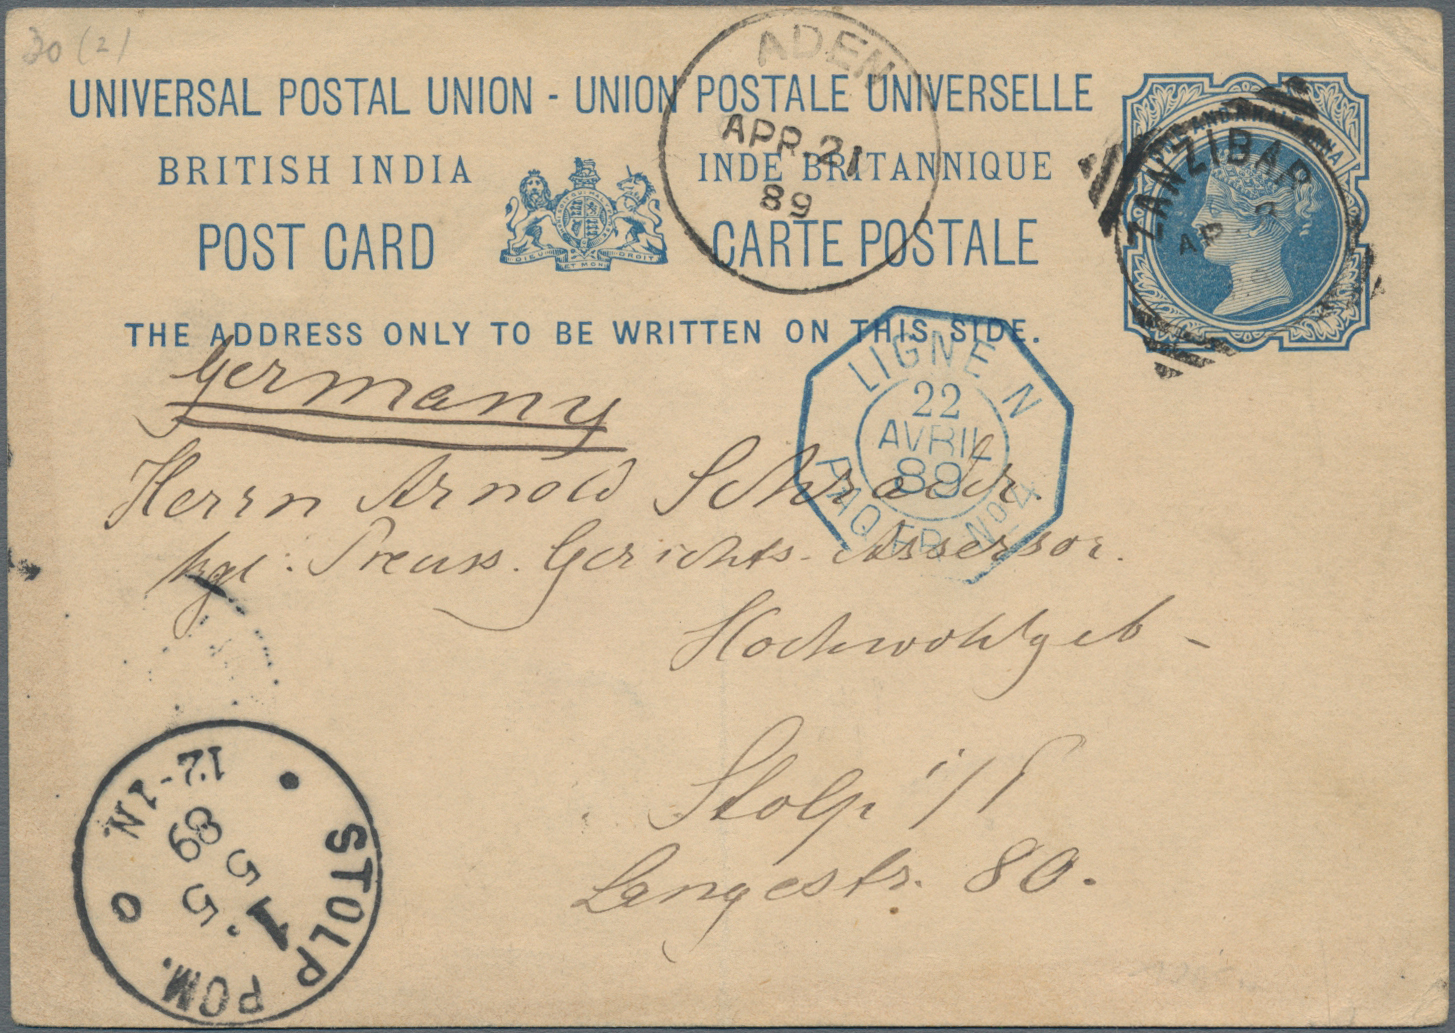 30 (2)
UNIVERSAL POSTAL UNION - UNION POSTALE UNIVERSELLE
BRITISH INDIA INDE BRITANNIQUE
POST CARD CARTE POSTALE
DIEU ET MON DROIT
THE ADDRESS ONLY TO BE WRITTEN ON THIS SIDE.
ADEN
APR. 21
89
ZANZIBAR
AP
LIGNE N
22
AVRIL
89
PAQ. FR. No. 4
Germany
Herrn Arnold Schrader.
kgl. Preuss. Gerichts-Assessor.
Hochwohlgeb -
Stolp i/P
Langestr. 80.
STOLP POM.
1 5
5
89
12-1N